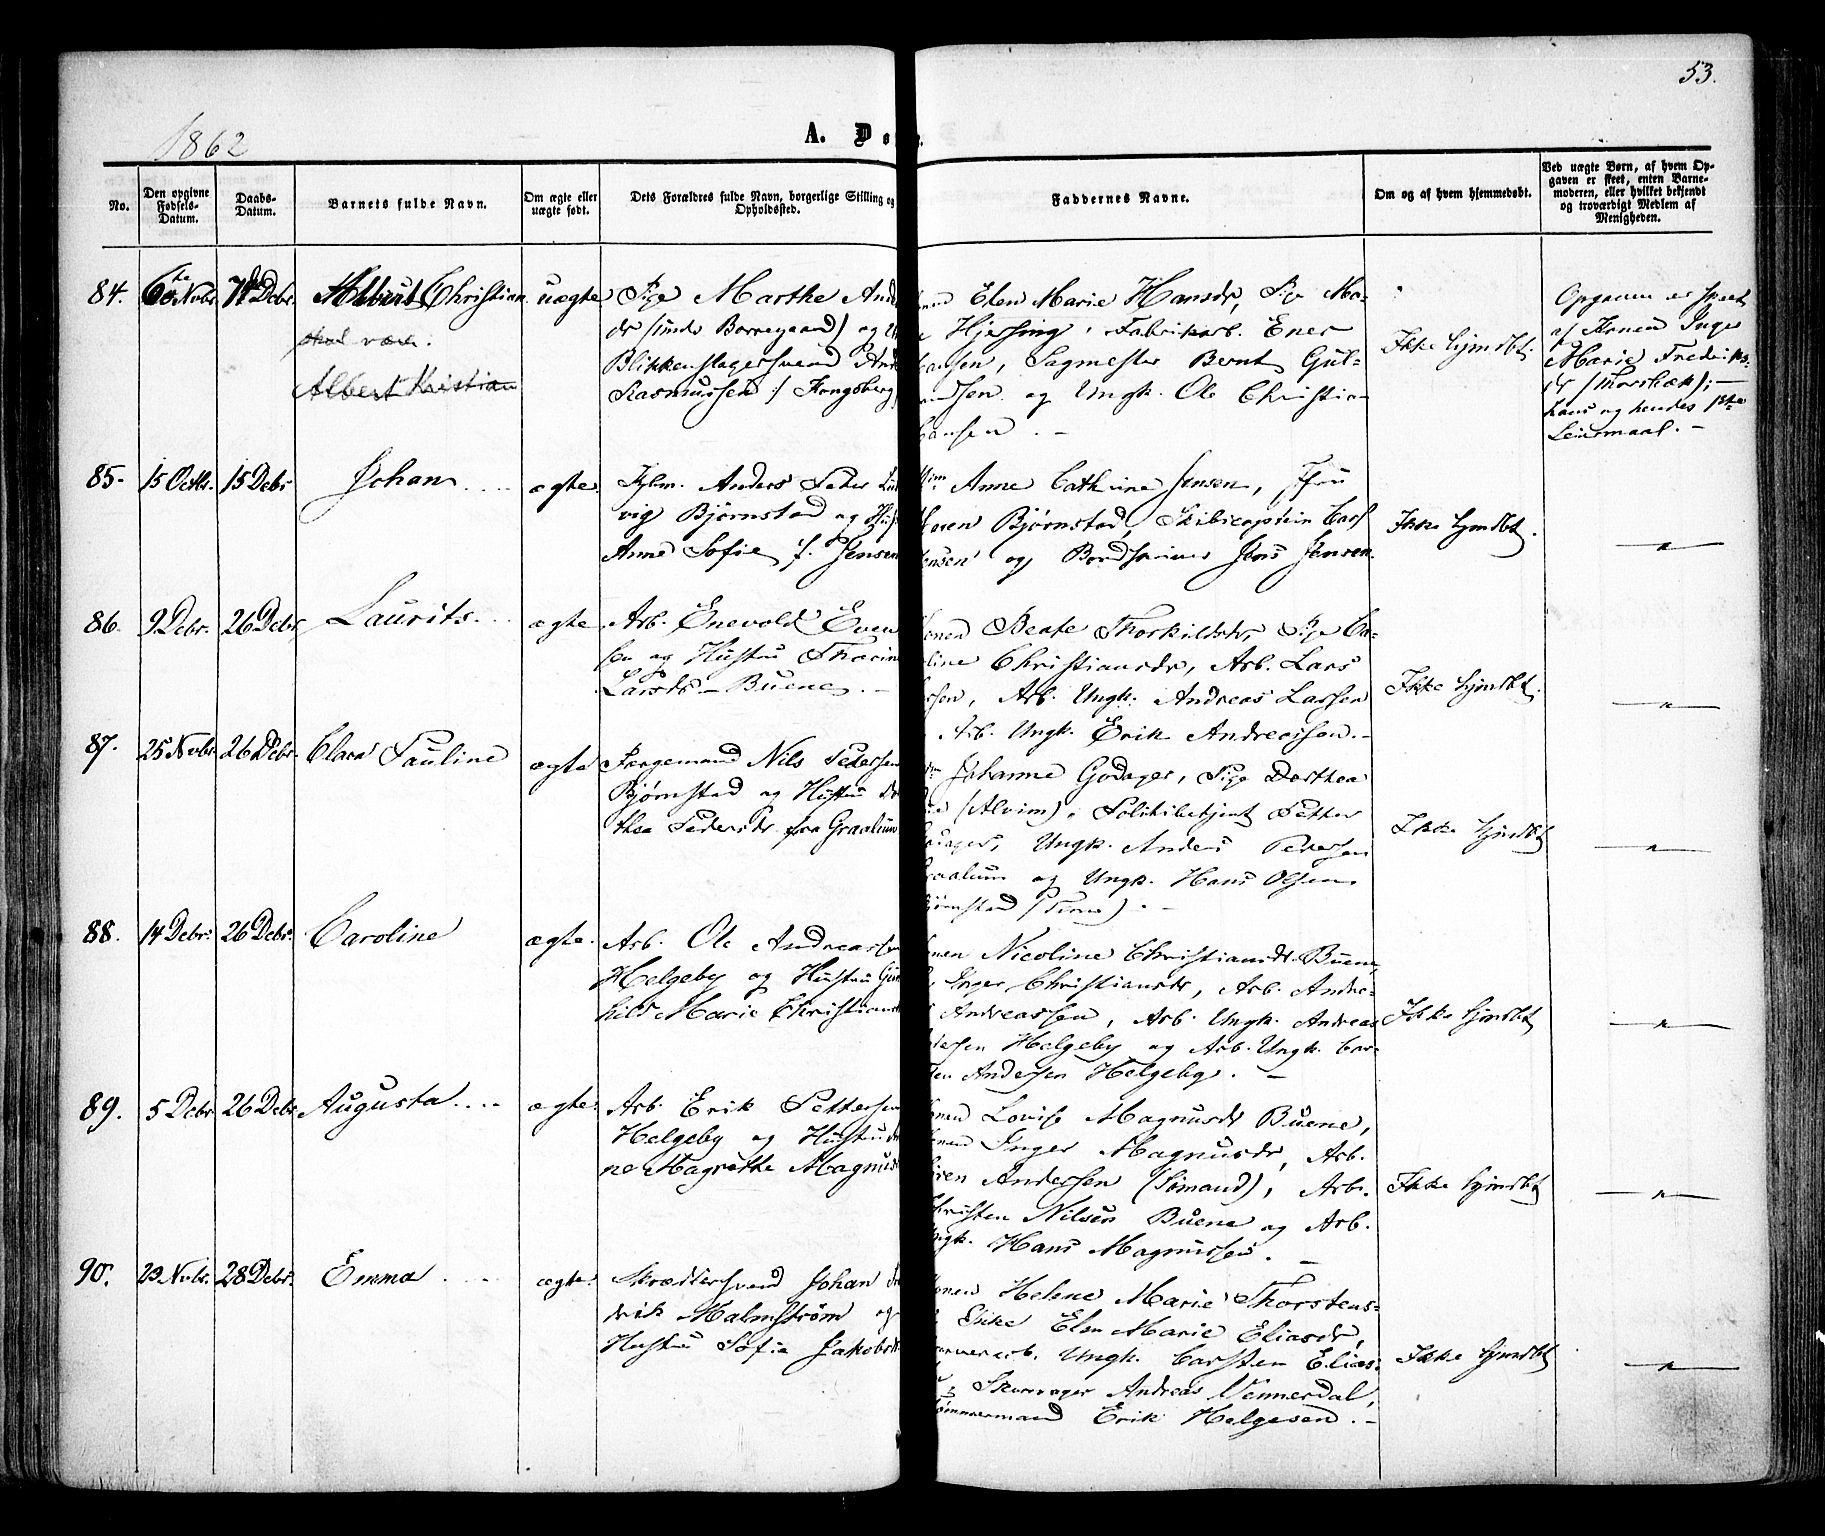 53.
1862
A. Dø
No.
Den opgivne Fødsels-Datum.
Daabs-Datum.
Barnets fulde Navn.
Om ægte eller uægte født.
Dets Forældres fulde Navn, borgerlige Stilling og Opholdssted.
Faddernes Navne.
Om og af hvem hjemmedøbt.
Ved uægte Børn, af hvem Opgaven er skeet, enten Barnemoderen, eller hvilket bekjendt og troværdigt Medlem af Menigheden.
84.
6te Novbr.
7de Debr.
Albert Christian
skal være:
Albert Kristian
uægte
Pige Marthe And
dr (unds Borregaard) og
Blikkenslagersvend And
Rasmussen: / Kongsberg
Elen Marie Hansdr, Pige Ma-
Hjessing, Fabrikarb. Ener
ansen, Sagmester Bernt Gul-
andsen og Ungk. Ole Christian
Hansen. -
Ikke hjmdbt.
Opgaven er skeet
af Konen Inger
Marie Frederiks-
dr (Torsbæk); -
hans og hendes 1ste
Leiermaal. -
85.
15 Octbr.
15 Debr
Johan
ægte.
Kjbm. Anders Peter Lud
vig Bjørnstad og Hust
Anne Sofie f. Jensen
Mm Anne Cathrine Jensen, Fru
Maren Bjørnstad, Skibscaptein Carl
Jensen og Bordskriver Jens Jensen.
Ikke hjmdbt.
— " —
86.
9 Debr.
26 Debr.
Laurits
ægte
Arb. Enevold Even
sen og Hustru Thorine
Larsdr - Buene. -
Konen Beate Thorkildsdr, Pige Ca-
roline Christiansdr, Arb. Lars
ssen, Arb. Ungk. Andreas Larsen
Arb. Ungk. Erik Andreassen. -
Ikke hjmdbt.
— " —
87.
25 Novbr.
26 Debr.
Clara Pauline
ægte
Færgemand Nils Pedersen
Bjørnstad og Hustru Do
thea Pedersdr fra Graalum
Johanne Godager, Pige Dorthea
(Alvim), Politibetjent Petter
Godager, Ungk. Anders Petersen
Graalum og Ungk. Hans Olsen
Bjørnstad (Tune). -
Ikke hjmdbt
— " —
88.
14 Debr.
26 Debr.
Caroline
ægte.
Arb. Ole Andreassen
Helgeby og Hustru Gun
hild Marie Christians
Konen Nicoline Christiansdr Buene,
Inger Christiansdr, Arb. Andre-
Andreassen, Arb. Ungk. Andreas
Pedersen Helgeby og Arb. Ungk. Car-
sten Andersen Helgeby. -
Ikke hjmdbt
— " —
89.
5 Debr
26 Debr
Augusta
ægte.
Arb. Erik Pettersen
Helgeby og Hustru
ne Magrethe Magnus
Konen Lovise Magnusdr Buene,
Konen Inger Magnusdr, Arb.
Søren Andersen (Simand), Arb.
Christen Nilsen Buene og Arb.
Ungk. Hans Magnussen. -
Ikke hjmdbt
— " —
90.
23 Novbr.
28 Debr.
Emma
ægte.
Skræddersvend Johan Fre
drik Malmstrøm og
Hustru Sofie Jakobsd
Konen Helene Marie Thorstens-
Enke Elen Marie Eliasdr,
Garverarb. Ungk. Carsten Elias-
Skomager Andreas Vennerdal,
Tømmermand Erik Helgesen. -
Ikke hjmdbt
— " —